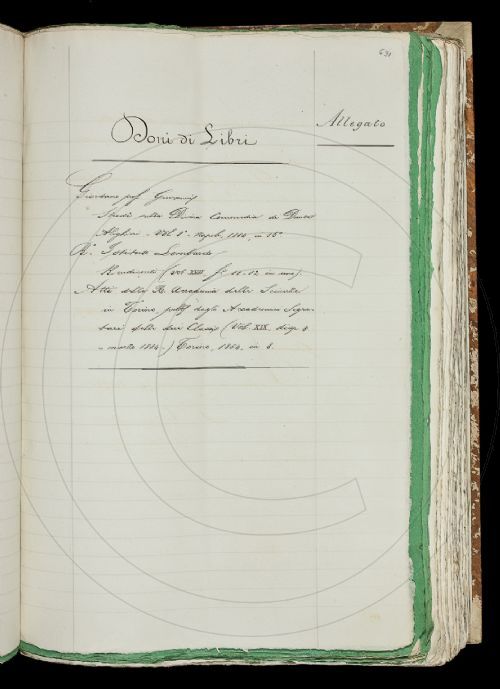 631
Allegato
Doni di Libri
Giordano prof. Giovanni
Studi sulla Divina Commedia di Dante
Alighieri - Vol. 1° - Napoli, 1884, in 16°
R. Istituto Lombardo
Rendiconti (vol. XVII f. 11-12 in uno).
Atti della R. Accademia delle Scienze
in Torino, pubb. dagli Accademici Segre-
tari delle due Classi (Vol. XIX, disp. 3
- marzo 1884 -) Torino, 1884, in 8.